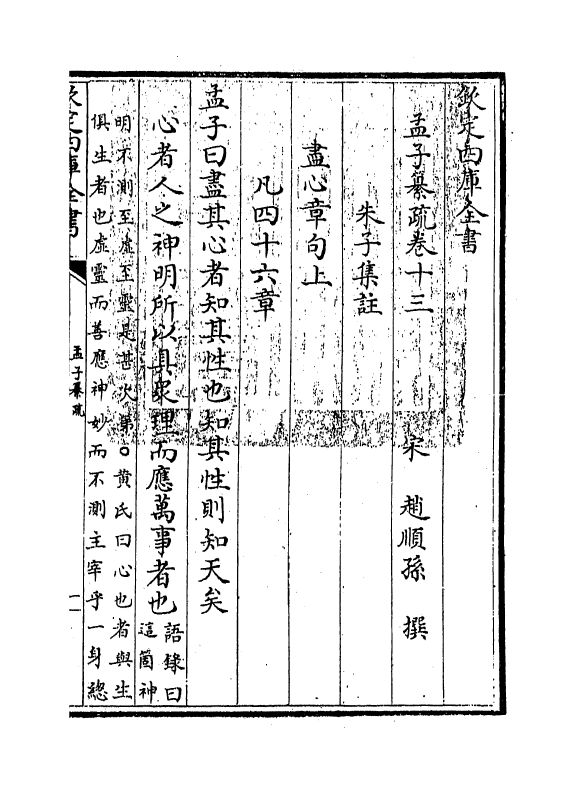 欽定四庫全書
孟子纂疏卷十三 宋 趙順孫 撰
朱子集註
盡心章句上
凡四十六章
孟子曰盡其心者知其性也知其性則知天矣
心者人之神明所以具衆理而應萬事者也
語録曰
這箇神
明不測至虛至靈是甚次第○黄氏曰心也者與生
俱生者也虛靈而善應神妙而不測主宰乎一身總
欽定四庫全書
孟子纂疏
一